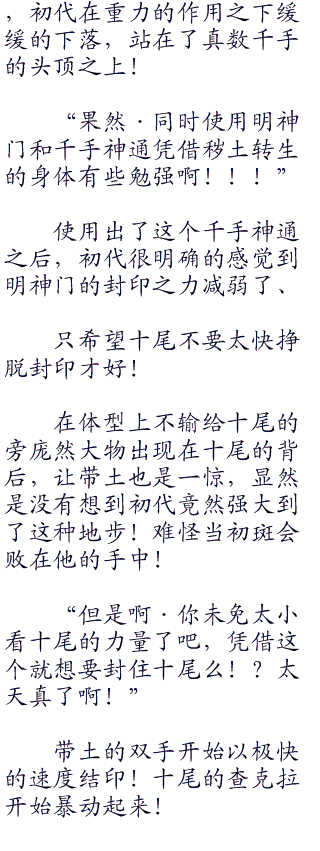 ，初代在重力的作用之下缓
缓的下落，站在了真数千手
的头顶之上！
“果然·同时使用明神
门和千手神通凭借秽土转生
的身体有些勉强啊！！！”
使用出了这个千手神通
之后，初代很明确的感觉到
明神门的封印之力减弱了、
只希望十尾不要太快挣
脱封印才好！
在体型上不输给十尾的
旁庞然大物出现在十尾的背
后，让带土也是一惊，显然
是没有想到初代竟然强大到
了这种地步！难怪当初斑会
败在他的手中！
“但是啊·你未免太小
看十尾的力量了吧，凭借这
个就想要封住十尾么！？太
天真了啊！”
带土的双手开始以极快
的速度结印！十尾的查克拉
开始暴动起来！